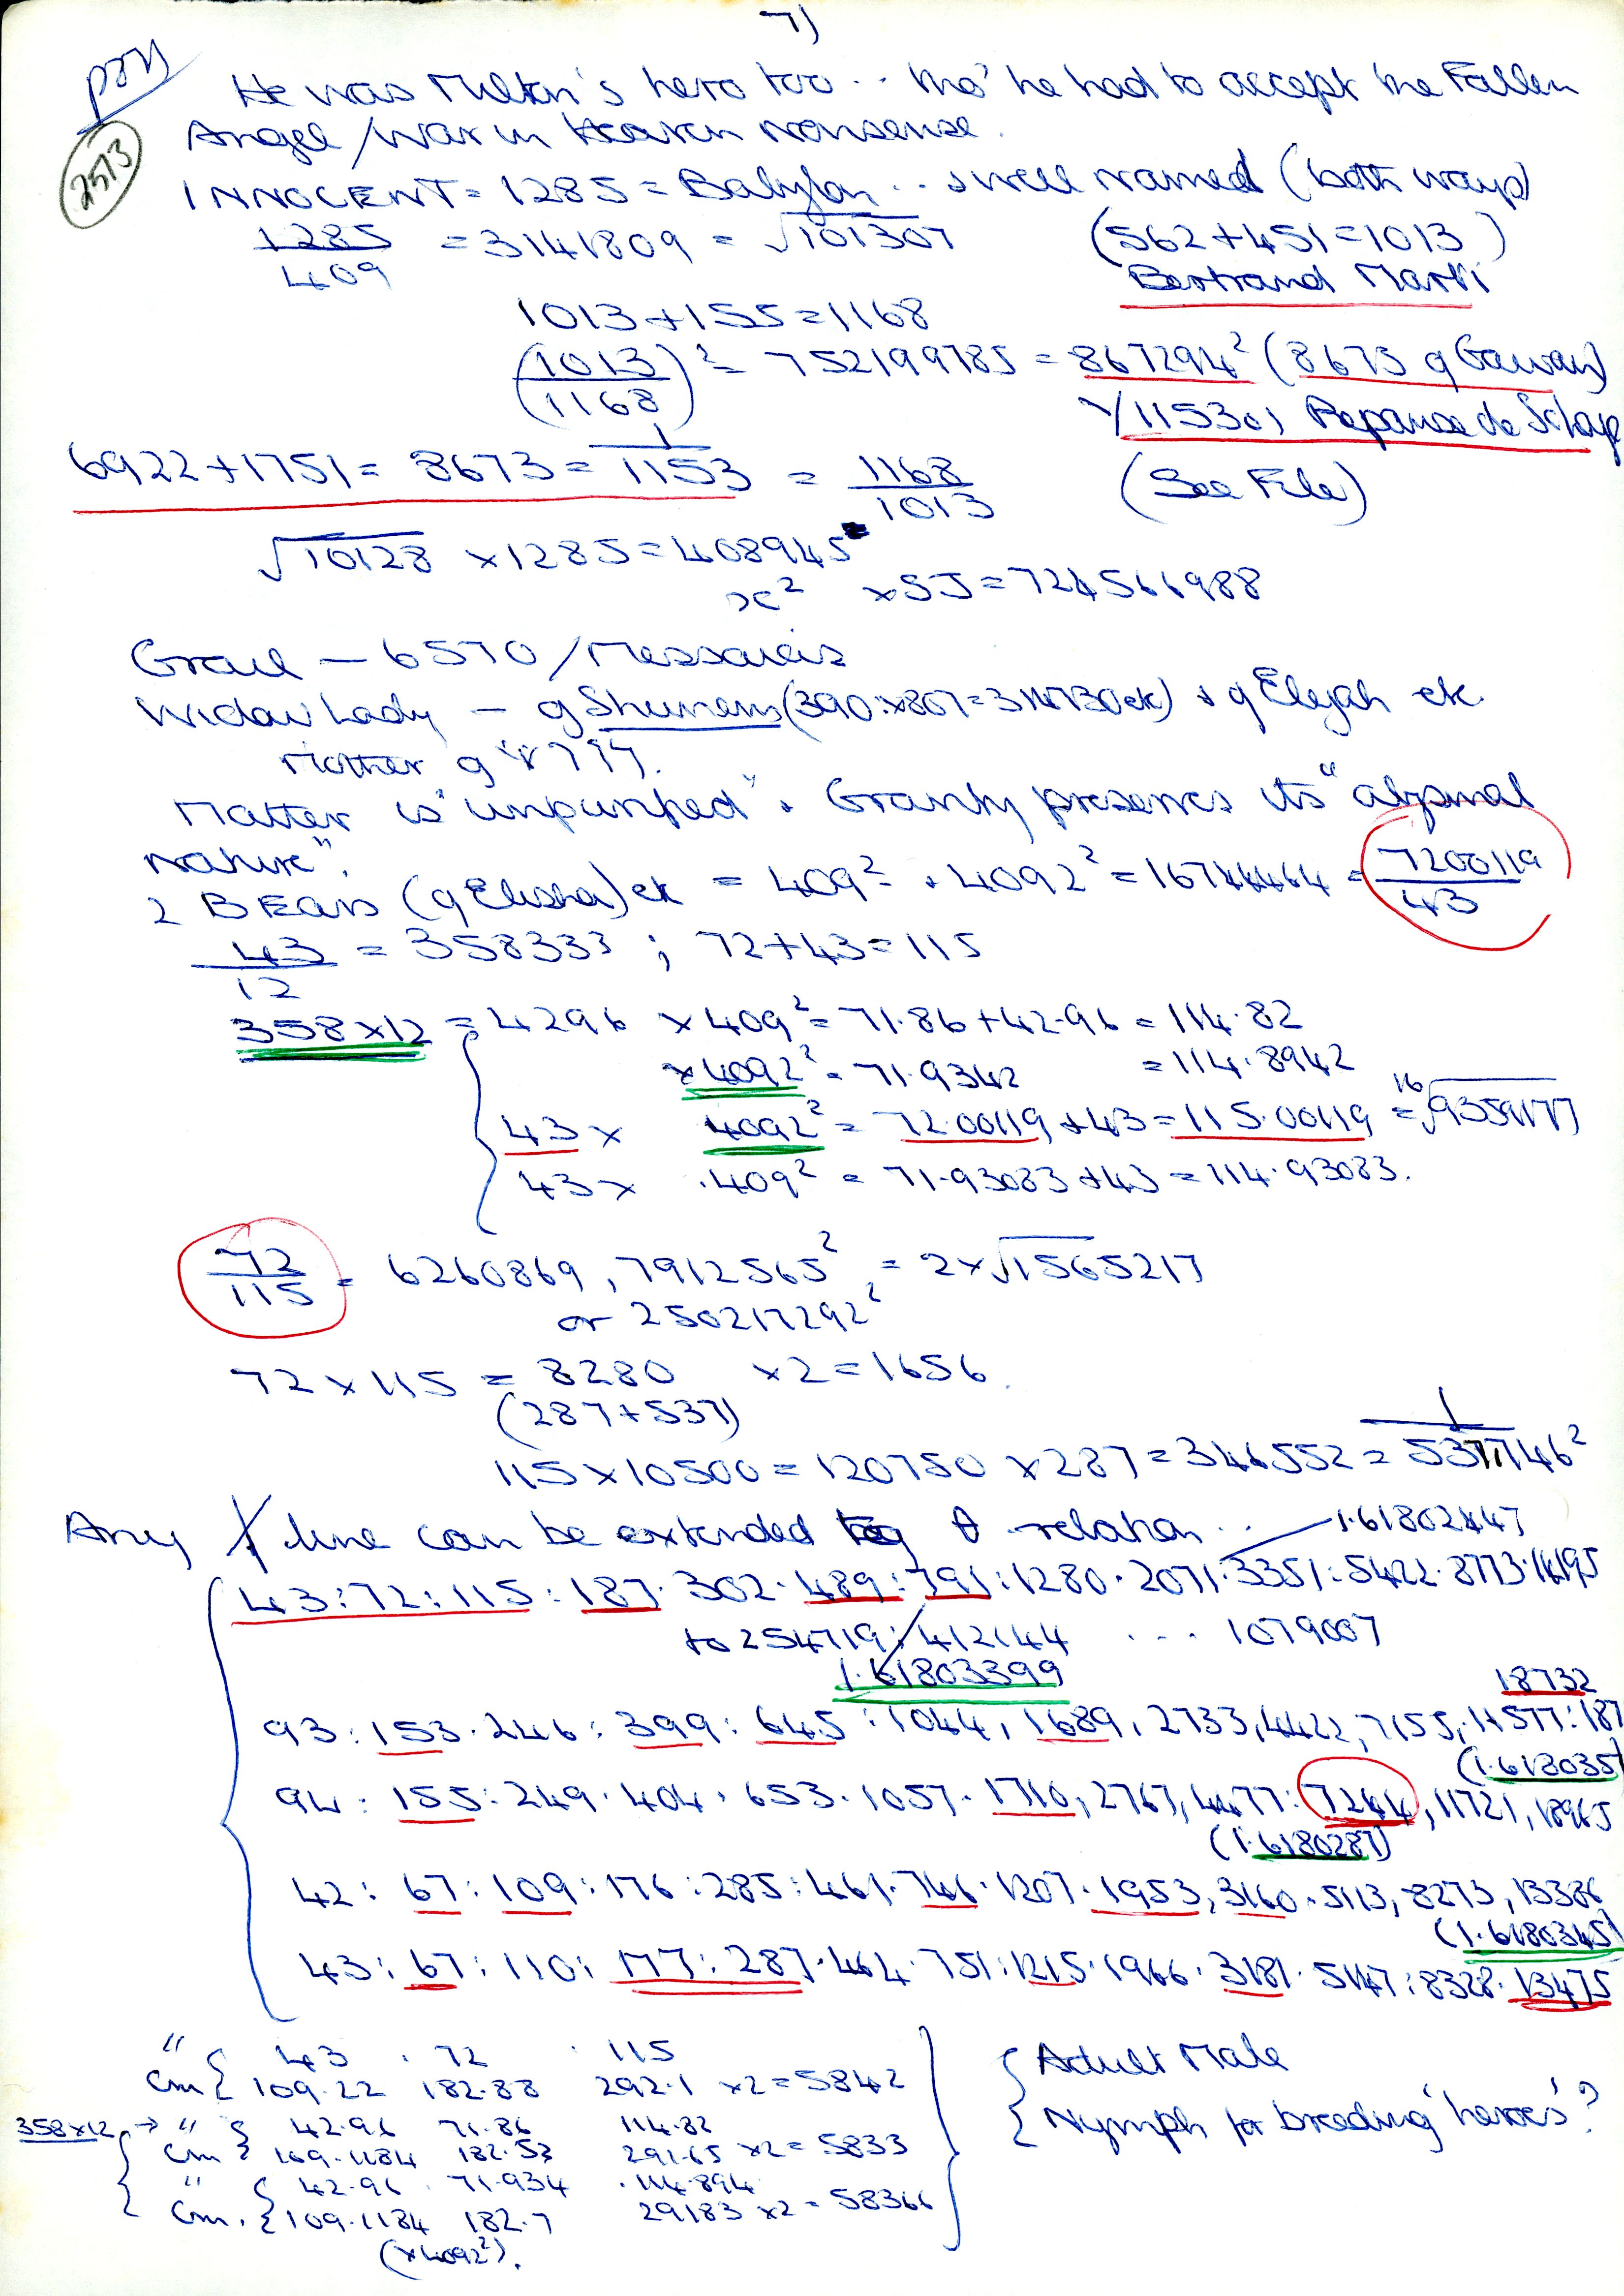 7)
POM
2573
He was Milton's hero too .. tho' he had to accept the Fallen
Angel / War in Heaven nonsense.
INNOCENT = 1285 = Babylon .. & well named (both ways)
1285/409 = 3141809 = √101307 (562+451=1013)
Bertrand Marti
1013+155=1168
(1013/1168)² = 752199785 = 867294² (8673 g Gawain)
1/115301 Repanse de Schoye
6922+1751= 8673 = 1/1153 = 1168/1013 (See File)
√10128 ×1285=408945
x² ×55=724566988
Grail — 6570 / Messaiais
Widow Lady — g Shunem (390×807=314730 etc) & g Elijah etc.
Mother g
Matter is "unpurified" & Gravity preserves its "abysmal
nature".
2 BEARS (g Elisha) etc = 409² & 4092² = 16744464 = 7200119/43
43/12 = 358333 ; 72+43=115
358×12 = 4296 ×409² = 71.86+42.96 = 114.82
×4092² = 71.9342 = 114.8942
43× 4092² = 72.00119+43=115.00119 = 16√9359177
43× .409² = 71.93083+43=114.93083.
72/115 = 6260869, 7912565² = 2×√1565217
or 250217292²
72×115 = 8280 ×2=1656.
(287+537)
115×10500=120750 ×287=346552 = 1/5377146²
Any line can be extended by θ relation .. 1.61802447
43:72:115:187.302.489:791:1280.2071.3351:5422.8773.14195
to 254719:412144 ... 1079007
1.61803399
18732
93:153.246:399:645:1044,1689,2733,4422,7155,11577:187
(1.618035)
94:155:249.404.653.1057.1710,2767,4477:7244,11721,18965
(1.6180287)
42:67:109:176:285:461.746.1207.1953,3160.5113,8273,13386
(1.6180345)
43:67:110:177:287.464.751:1215.1966.3181.5147:8328.13475
" 43 . 72 . 115
cm 109.22 182.88 292.1 ×2=5842
Adult Male
358×12 → " 42.96 71.86 114.82
Nymph for breeding 'heroes'?
cm 109.1184 182.53 291.65 ×2=5833
" 42.96 . 71.934 .114.894
cm. 109.1184 182.7 29183 ×2=58366
(×4092²).